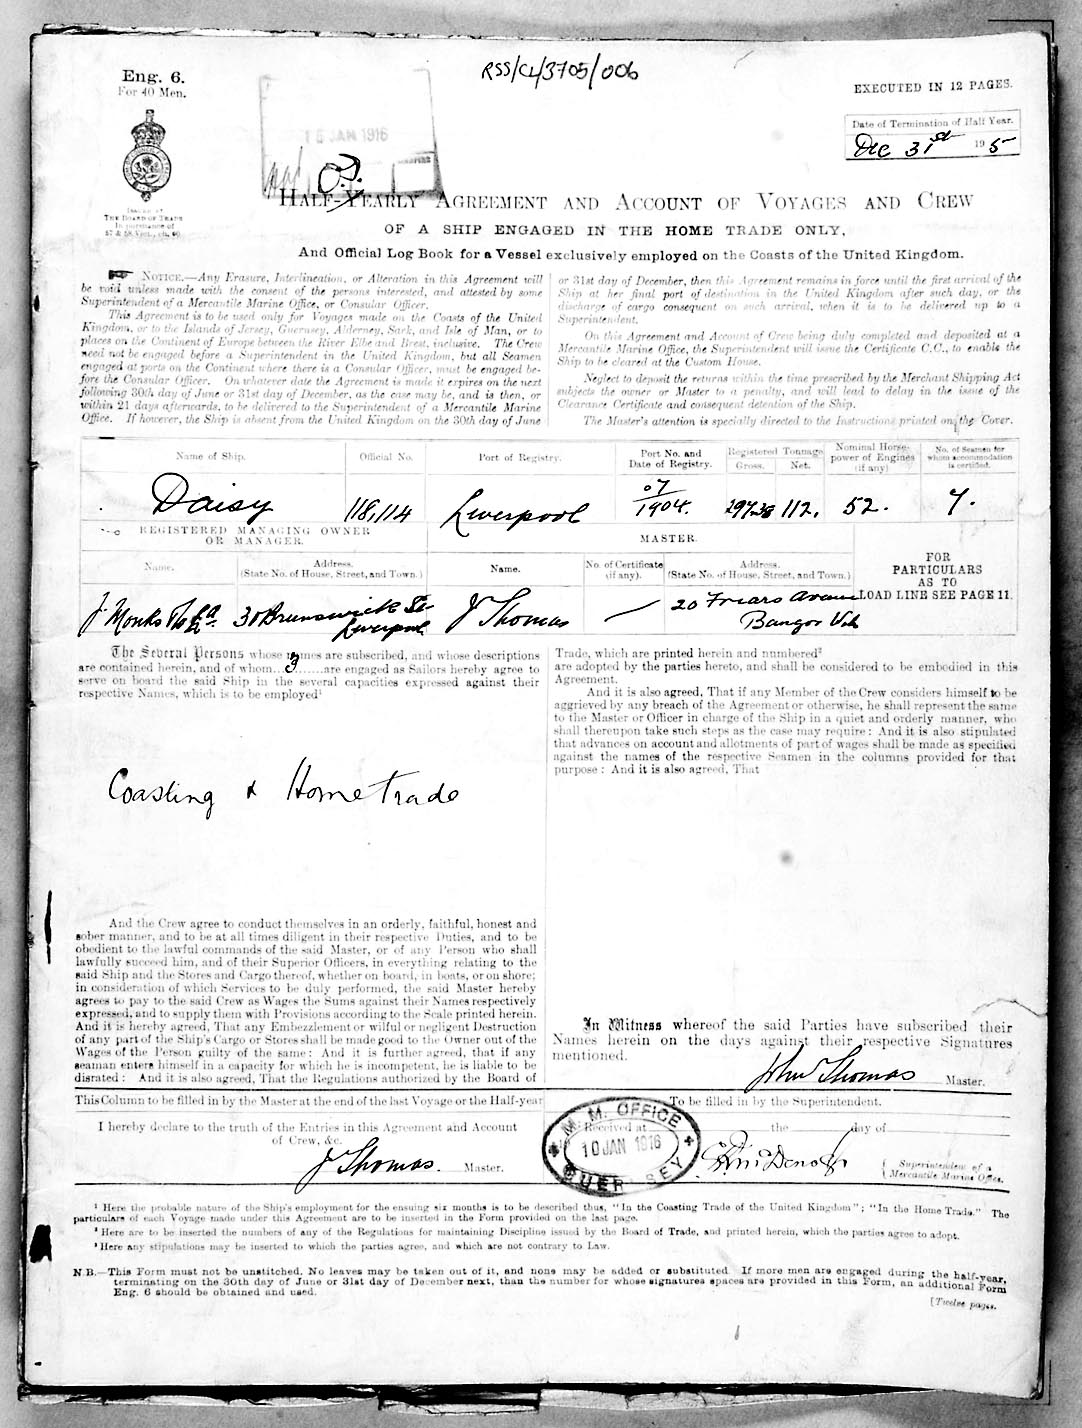 RSS/CL/3705/006
Eng. 6.
For 40 Men.
EXECUTED IN 12 PAGES.
15 JAN 1916
Date of Termination of Half Year.
Dec 31st 1915
ISSUED BY
THE BOARD OF TRADE
In pursuance of
57 & 58 Vict., ch. 60.
HALF-YEARLY AGREEMENT AND ACCOUNT OF VOYAGES AND CREW
OF A SHIP ENGAGED IN THE HOME TRADE ONLY,
And Official Log Book for a Vessel exclusively employed on the Coasts of the United Kingdom.
NOTICE.—Any Erasure, Interlineation, or Alteration in this Agreement will
be void unless made with the consent of the persons interested, and attested by some
Superintendent of a Mercantile Marine Office, or Consular Officer.
This Agreement is to be used only for Voyages made on the Coasts of the United
Kingdom, or to the Islands of Jersey, Guernsey, Alderney, Sark, and Isle of Man, or to
places on the Continent of Europe between the River Elbe and Brest, inclusive. The Crew
need not be engaged before a Superintendent in the United Kingdom, but all Seamen
engaged at ports on the Continent where there is a Consular Officer, must be engaged be-
fore the Consular Officer. On whatever date the Agreement is made it expires on the next
following 30th day of June or 31st day of December, as the case may be, and is then, or
within 21 days afterwards, to be delivered to the Superintendent of a Mercantile Marine
Office. If however, the Ship is absent from the United Kingdom on the 30th day of June
or 31st day of December, then this Agreement remains in force until the first arrival of the
Ship at her final port of destination in the United Kingdom after such day, or the
discharge of cargo consequent on such arrival, when it is to be delivered up to a
Superintendent.
On this Agreement and Account of Crew being duly completed and deposited at a
Mercantile Marine Office, the Superintendent will issue the Certificate C.C., to enable the
Ship to be cleared at the Custom House.
Neglect to deposit the returns within the time prescribed by the Merchant Shipping Act
subjects the owner or Master to a penalty, and will lead to delay in the issue of the
Clearance Certificate and consequent detention of the Ship.
The Master's attention is specially directed to the Instructions printed on the Cover.
Name of Ship. Official No. Port of Registry. Port No. and Date of Registry. Registered Tonnage Gross. Net. Nominal Horse-power of Engines (if any) No. of Seamen for whom accommodation is certified.
Daisy 118,114 Liverpool 07/1904. 297.38 112. 52. 7.
REGISTERED MANAGING OWNER OR MANAGER.
MASTER.
FOR
PARTICULARS
AS TO
LOAD LINE SEE PAGE 11.
Name. Address. (State No. of House, Street, and Town.) Name. No. of Certificate (if any). Address. (State No. of House, Street, and Town.)
J. Monks & Co Ld 30 Brunswick St Liverpool J Thomas 20 Friars Avenue
Bangor
The Several Persons whose names are subscribed, and whose descriptions
are contained herein, and of whom 3 are engaged as Sailors hereby agree to
serve on board the said Ship in the several capacities expressed against their
respective Names, which is to be employed¹
Coasting & Home Trade
And the Crew agree to conduct themselves in an orderly, faithful, honest and
sober manner, and to be at all times diligent in their respective Duties, and to be
obedient to the lawful commands of the said Master, or of any Person who shall
lawfully succeed him, and of their Superior Officers, in everything relating to the
said Ship and the Stores and Cargo thereof, whether on board, in boats, or on shore;
in consideration of which Services to be duly performed, the said Master hereby
agrees to pay to the said Crew as Wages the Sums against their Names respectively
expressed, and to supply them with Provisions according to the Scale printed herein.
And it is hereby agreed, That any Embezzlement or wilful or negligent Destruction
of any part of the Ship's Cargo or Stores shall be made good to the Owner out of the
Wages of the Person guilty of the same: And it is further agreed, that if any
seaman enters himself in a capacity for which he is incompetent, he is liable to be
disrated: And it is also agreed, That the Regulations authorized by the Board of
Trade, which are printed herein and numbered²
are adopted by the parties hereto, and shall be considered to be embodied in this
Agreement.
And it is also agreed, That if any Member of the Crew considers himself to be
aggrieved by any breach of the Agreement or otherwise, he shall represent the same
to the Master or Officer in charge of the Ship in a quiet and orderly manner, who
shall thereupon take such steps as the case may require: And it is also stipulated
that advances on account and allotments of part of wages shall be made as specified
against the names of the respective Seamen in the columns provided for that
purpose: And it is also agreed, That
In Witness whereof the said Parties have subscribed their
Names herein on the days against their respective Signatures
mentioned.
John Thomas Master.
This Column to be filled in by the Master at the end of the last Voyage or the Half-year
I hereby declare to the truth of the Entries in this Agreement and Account
of Crew, &c.
J Thomas. Master.
To be filled in by the Superintendent.
Received at the day of
M. M. OFFICE
10 JAN 1916
GUERNSEY
Superintendent of a
Mercantile Marine Office.
¹ Here the probable nature of the Ship's employment for the ensuing six months is to be described thus, "In the Coasting Trade of the United Kingdom"; "In the Home Trade." The
particulars of each Voyage made under this Agreement are to be inserted in the Form provided on the last page.
² Here are to be inserted the numbers of any of the Regulations for maintaining Discipline issued by the Board of Trade, and printed herein, which the parties agree to adopt.
³ Here any stipulations may be inserted to which the parties agree, and which are not contrary to Law.
N.B.—This Form must not be unstitched. No leaves may be taken out of it, and none may be added or substituted. If more men are engaged during the half-year,
terminating on the 30th day of June or 31st day of December next, than the number for whose signatures spaces are provided in this Form, an additional Form
Eng. 6 should be obtained and used.
[Twelve pages.